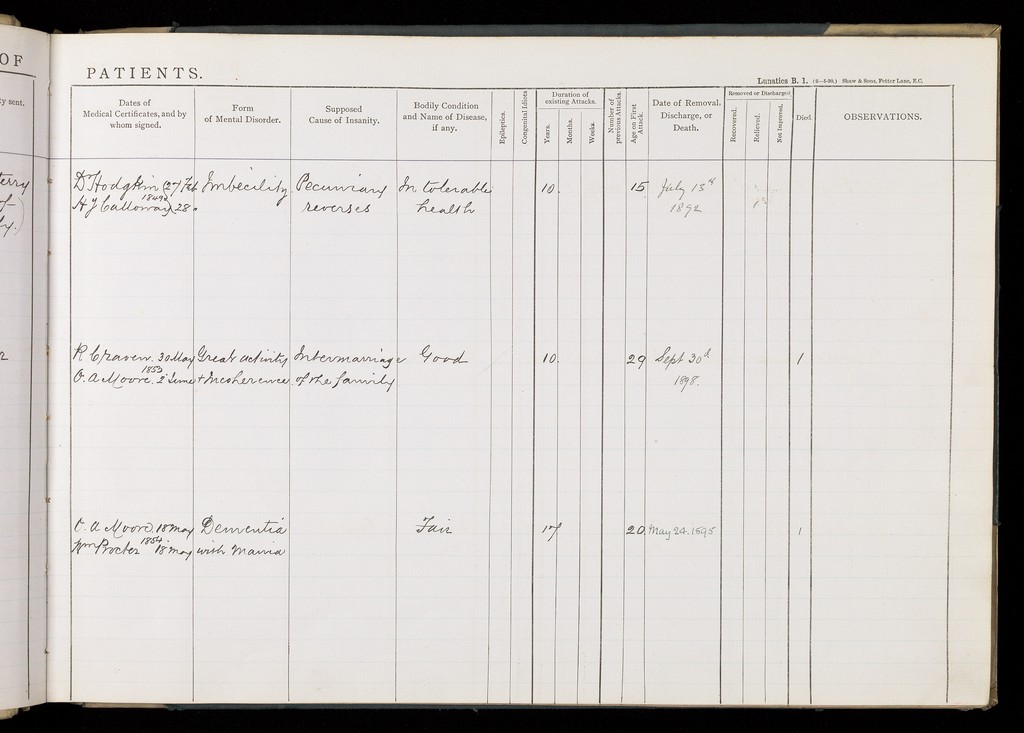 OF
PATIENTS.
Lunatics B. 1. (6—8-90.) Shaw & Sons, Fetter Lane, E.C.
y sent.
Dates of
Medical Certificates, and by
whom signed.
Form
of Mental Disorder.
Supposed
Cause of Insanity.
Bodily Condition
and Name of Disease,
if any.
Epileptics.
Congenital Idiots
Duration of
existing Attacks.
Years.
Months.
Weeks.
Number of
previous Attacks.
Age on First
Attack.
Date of Removal.
Discharge, or
Death.
Removed or Discharged
Recovered.
Relieved.
Not Improved.
Died.
OBSERVATIONS.
D Hodgkin (27 Feb Imbecility Pecuniary In tolerable 10. 15 July 13th
H J Calloway) 28. reverses health 1892
R Craven. 30 May Great activity Intermarriage Good 10. 29 Sept 30d 1
1853
O. A Moore. 2 June + Incoherence of the family 1898.
O. A Moore. 18 May Dementia Fair 17 20. May 24. 1895 1
1854
Wm Procter 18 May with Mania